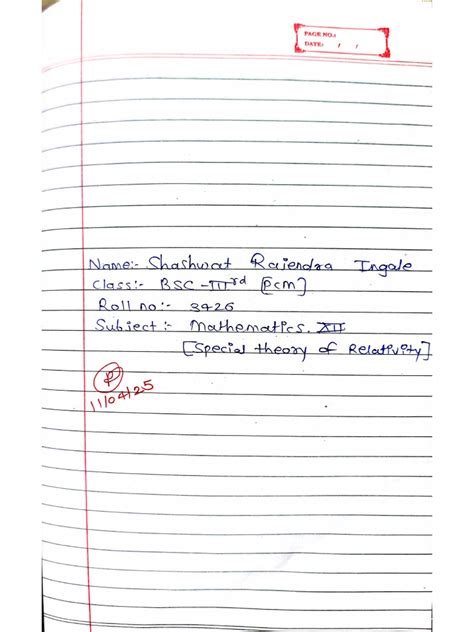 PAGE NO.:
DATE: / /
Name:- Shashwat Rajendra Ingale
Class:- BSC-IIIrd [PCM]
Roll no:- 3426
Subject:- Mathematics. XII
[Special theory of Relativity]
P
11/04/25